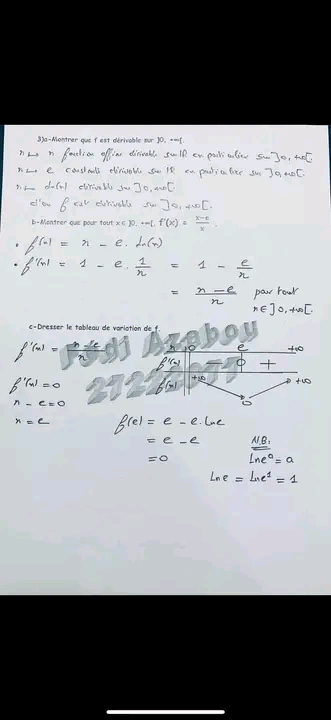 3)a-Montrer que f est dérivable sur ]0, +∞[.
x ↦ x fonction affine dérivable sur IR en particulier sur ]0,+∞[.
x ↦ e constante dérivable sur IR en particulier sur ]0,+∞[.
x ↦ ln(x) dérivable sur ]0,+∞[
d'où f est dérivable sur ]0,+∞[.
b-Montrer que pour tout x ∈ ]0, +∞[, f'(x) = (x-e)/x.
• f(x) = x - e. ln(x)
• f'(x) = 1 - e. 1/x = 1 - e/x
= (x-e)/x pour tout
x ∈ ]0,+∞[.
c-Dresser le tableau de variation de f.
f'(x) = (x-e)/x
x 0 e +∞
f'(x) - 0 +
f(x) +∞ 0 +∞
f'(x) = 0
x - e = 0
x = e
f(e) = e - e.ln e
= e - e
= 0
N.B:
ln eᵃ = a
ln e = ln e¹ = 1
Fadi Azabou
27222077